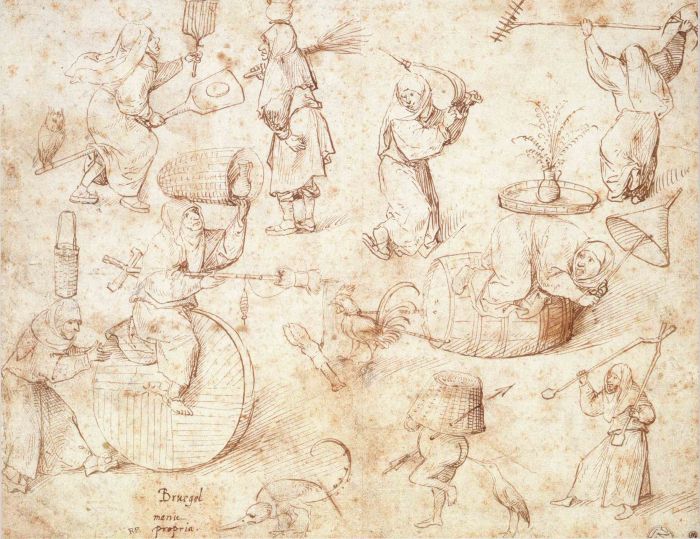 Bruegel
manu
propria.